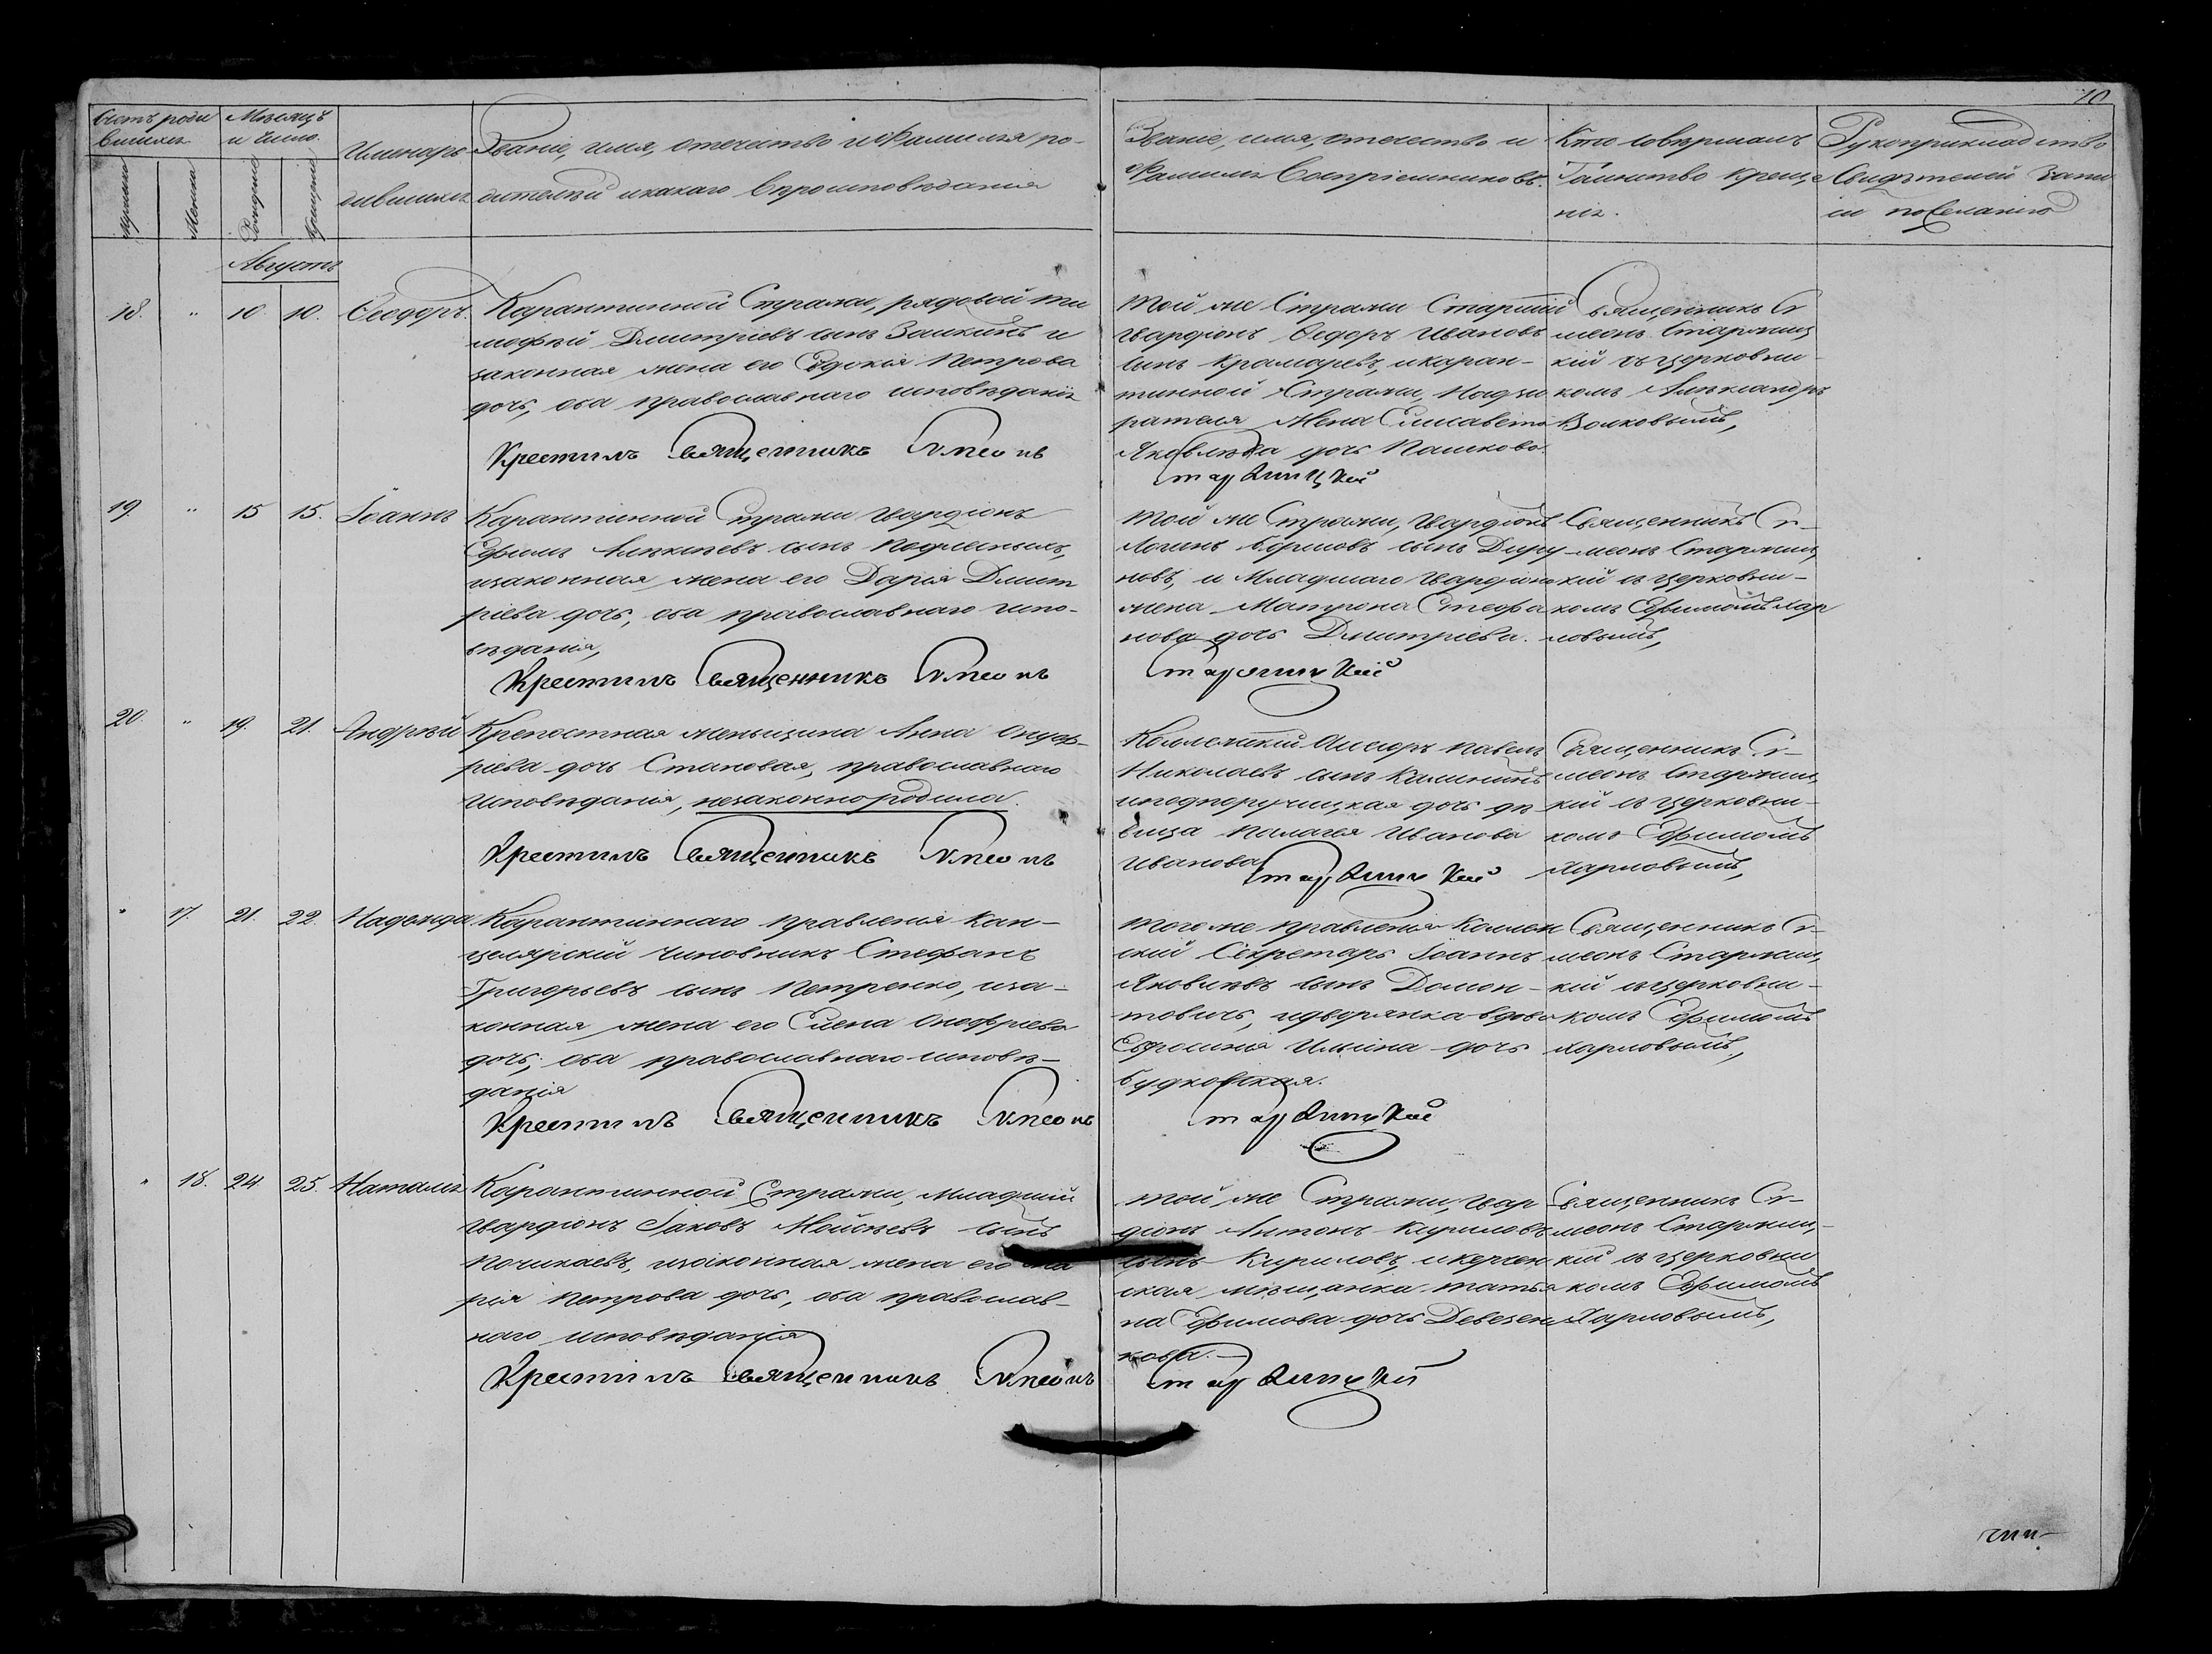 10
Счетъ роди
вшихся
Мѣсяцъ
и число.
Имена ро
дившихся
Званіе, имя, отечество и фамилія ро-
дителей и какаго вѣроисповѣданія
Мужеска
Женска
Рожденія
Крещенія
Званіе, имя, отечество и
Фамилія Воспріемниковъ.
Кто совершалъ
Таинство креще
нія.
Рукоприкладство
Свидѣтелей записи
по желанію
Августъ
18. " 10. 10. Ѳеодоръ.
Карантинной Стражи, рядовой Ти
мофей Дмитріевъ сынъ Заикинъ и
законная жена его Евдокія Петрова
дочь, оба православнаго исповѣданія
Крестилъ Священникъ Симеонъ
Той же Стражи Старшій
Гвардіонъ Ѳедоръ Ивановъ
сынъ Крамаревъ, и каран-
тинной Стражи, Надзи
рателя Жена Елисавета
Яковлева дочь Пашкова.
Старжицкій
Священникъ Си
меонъ Старжиц
кій съ церковни-
комъ Александръ
Волковымъ,
19. " 15 15. Іоаннъ
Карантинной Стражи Гвардіонъ
Ефимъ Алексѣевъ сынъ
и законная жена его Дарія Дмит
ріева дочь, оба православнаго испо-
вѣданія,
Крестилъ Священникъ Симеонъ
Той же Стражи, Гвардіонъ
Логинъ сынъ Диру
новъ, и Младшаго Гвардіона
жена Матрона Стефа
нова дочь Дмитріева.
Старжицкій
Священникъ Си-
меонъ Старжиц
кій съ церковни-
комъ Ефимомъ Хар
ловымъ,
20. " 19. 21. Андрей
Крепостная женьщина Анна Онуф-
ріева дочь Становая, православнаго
Исповѣданія, незаконнородила.
Крестилъ Священникъ Симеонъ
Коллежскій Ассесоръ Павелъ
Николаевъ сынъ Калининъ
и подпоручицкая дочь дѣ-
вица Палагея Иванова
Иванова
Старжицкій
Священникъ Си-
меонъ Старжиц
кій съ церковни-
комъ Ефимомъ
Харловымъ,
" 17. 21. 22. Надежда
Карантиннаго Правленія Кан-
целярскій чиновникъ Стефанъ
Григорьевъ сынъ Петренко, и за-
конная жена его Елена Онофріева
дочь, оба православнаго исповѣ-
данія
Крестилъ Священникъ Симеонъ
Того же Правленія Коллеж
скій Секретарь Іоаннъ
Яковлевъ сынъ Домон-
товичъ, и дворянка вдова
Ефросинія Ильина дочь
Будковская.
Старжицкій
Священникъ Си-
меонъ Старжиц,
кій съ церковни-
комъ Ефимомъ
Харловымъ,
" 18. 24 25. Наталія
Карантинной Стражи, Младшій
Гвардіонъ Іаковъ Мойсѣевъ сынъ
Почикаевъ, и законная жена его Ма
рія Петрова дочь, оба православ-
наго исповѣданія
Крестилъ Священникъ Симеонъ
Той же Стражи, Гвар
діонъ Антонъ Кириловъ
сынъ Кириловъ, и керчен
ская мѣщанка Татья
на Ефимова дочь Девезен
кова.
Старжицкій
Священникъ Си-
меонъ Старжиц,-
кій съ церковни
комъ Ефимомъ
Харловымъ,